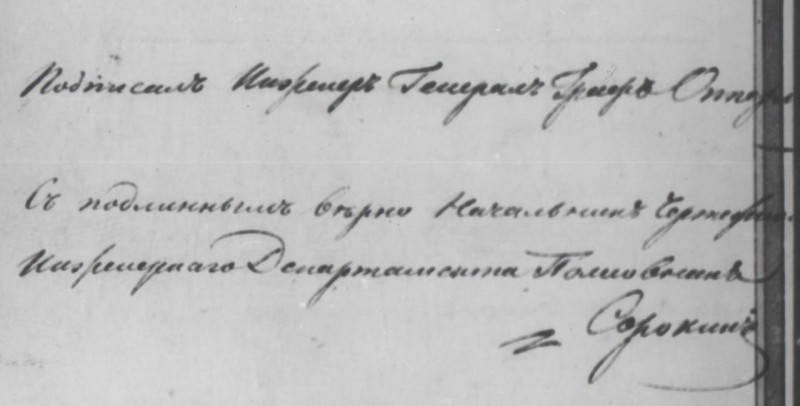 Подписалъ Инженеръ Генералъ Графъ Опперм
Съ подлиннымъ вѣрно Начальникъ Чертежно
Инженернаго Департамента Полковникъ
Сорокинъ